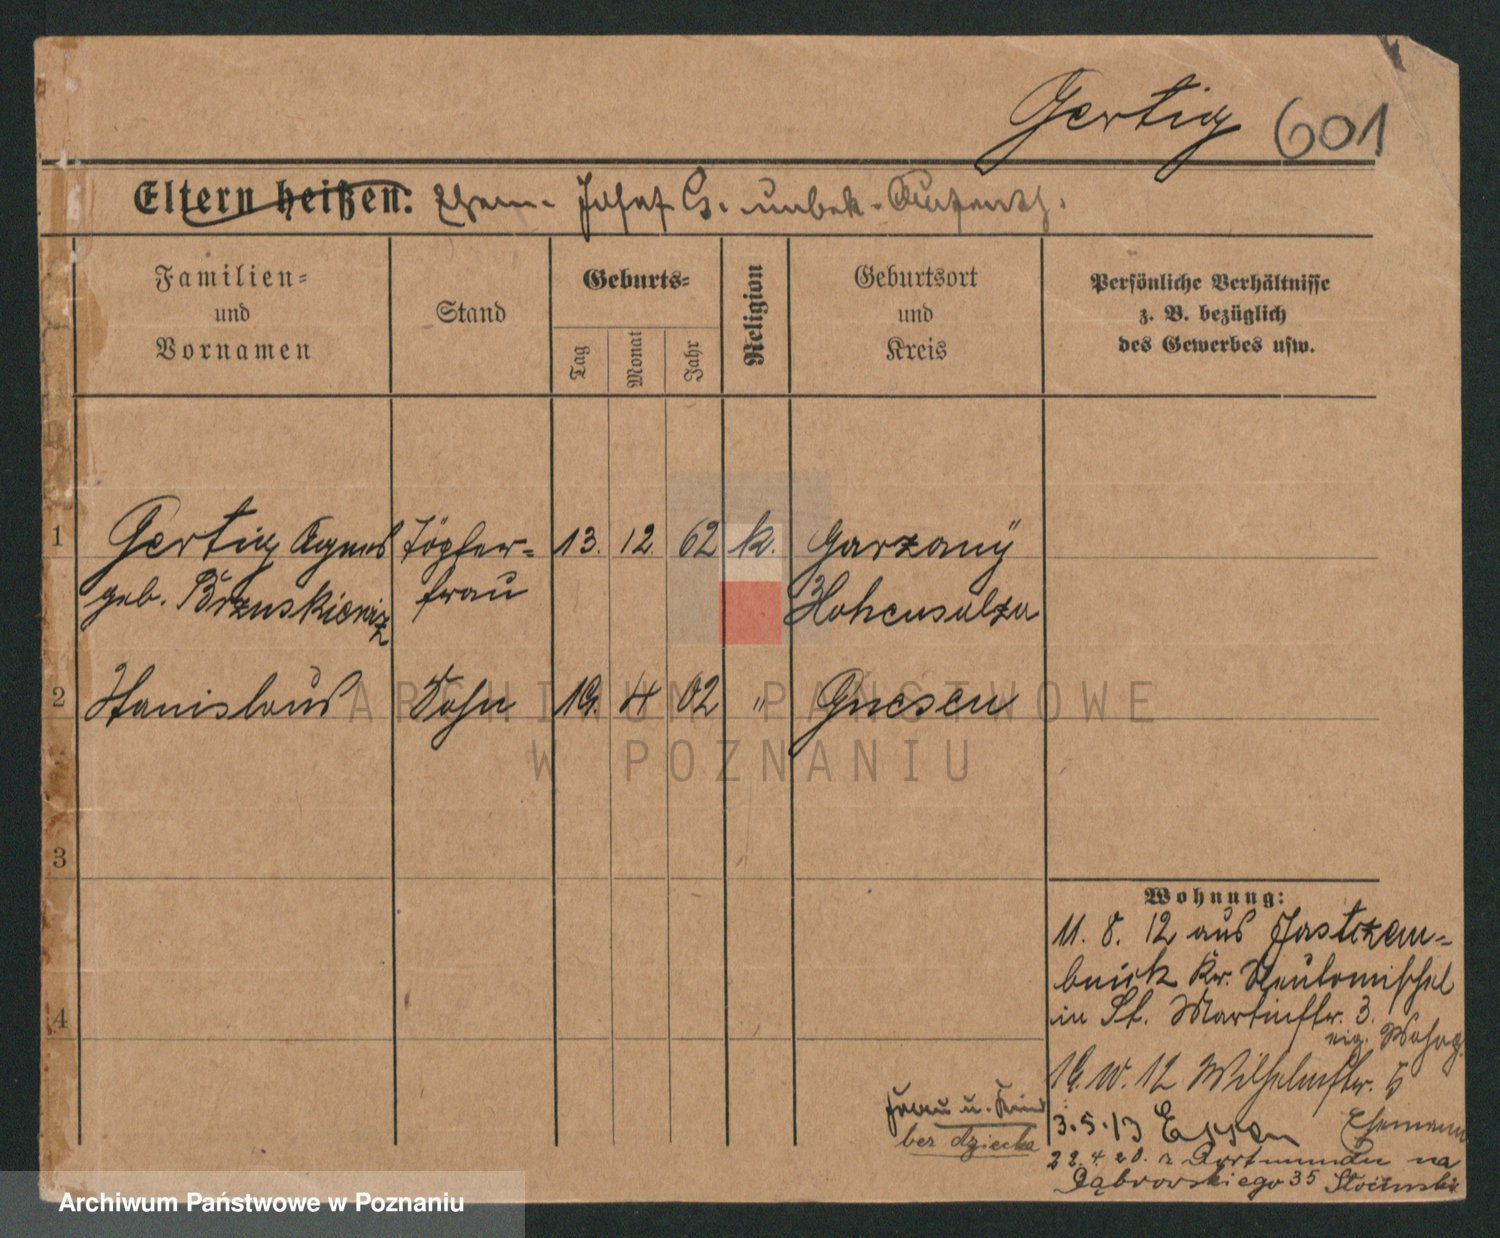 Gertig 601
Eltern heißen: Ehem. Josef G. unbek. Aufenth.
Familien-
und
Vornamen
Stand
Geburts-
Tag
Monat
Jahr
Religion
Geburtsort
und
Kreis
Persönliche Verhältnisse
z. B. bezüglich
des Gewerbes usw.
1 Gertig Agnes Töpfer- 13. 12. 62 k. Garzany
geb. Brzuskiewicz frau Hohensalza
2 Stanislaus Sohn 19. 4 02 " Gnesen
ARCHIWUM PAŃSTWOWE
W POZNANIU
3
4
Wohnung:
11. 8. 12 aus Jastrzem-
bnick Kr. Neutomischel
in St. Martinstr. 3.
eig. Wohng.
19. 10. 12 Wilhelmstr. 5
Frau u. Kind 3.5.13 Essen Ehemann
bez dziecka 22.4.20. z Dortmundu na
Dąbrowskiego 35
Archiwum Państwowe w Poznaniu